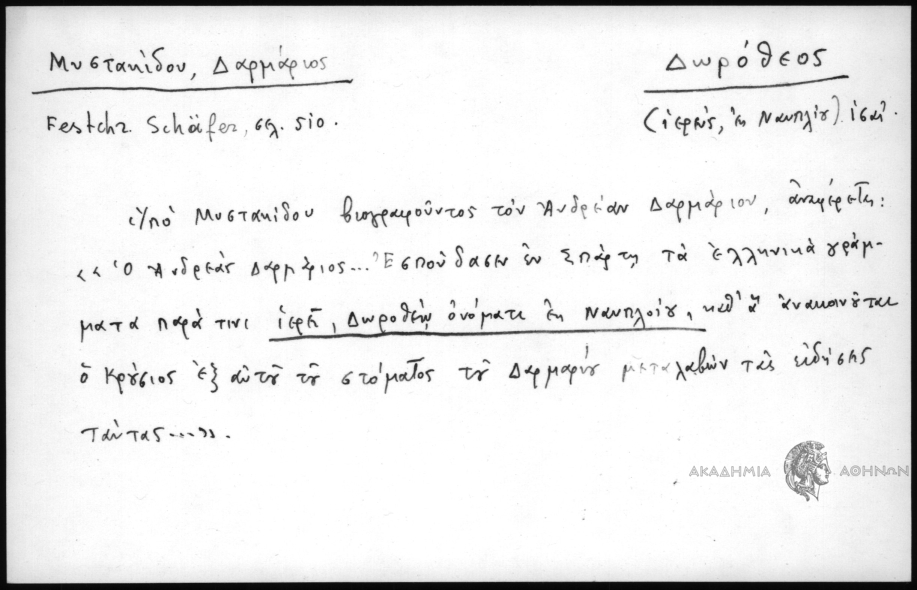 Μυστακίδου, Δαρμάριος
Δωρόθεος
Festchr. Schäfer, σελ. 510.
(ἱερεὺς, ἐκ Ναυπλίου) ιςʹ αἰ.
Ὑπὸ Μυστακίδου βιογραφοῦντος τὸν Ἀνδρέαν Δαρμάριον, ἀναφέρεται:
«Ὁ Ἀνδρέας Δαρμάριος... Ἐσπούδασεν ἐν Σπάρτῃ τὰ ἑλληνικὰ γράμ-
ματα παρά τινι ἱερεῖ, Δωροθέῳ ὀνόματι ἐκ Ναυπλοίου, καθ' ἃ ἀνακοινοῦται
ὁ Κρούσιος ἐξ αὐτοῦ τοῦ στόματος τοῦ Δαρμαρίου μεταλαβὼν τὰς εἰδήσεις
ταύτας....».
ΑΚΑΔΗΜΙΑ ΑΘΗΝΩΝ